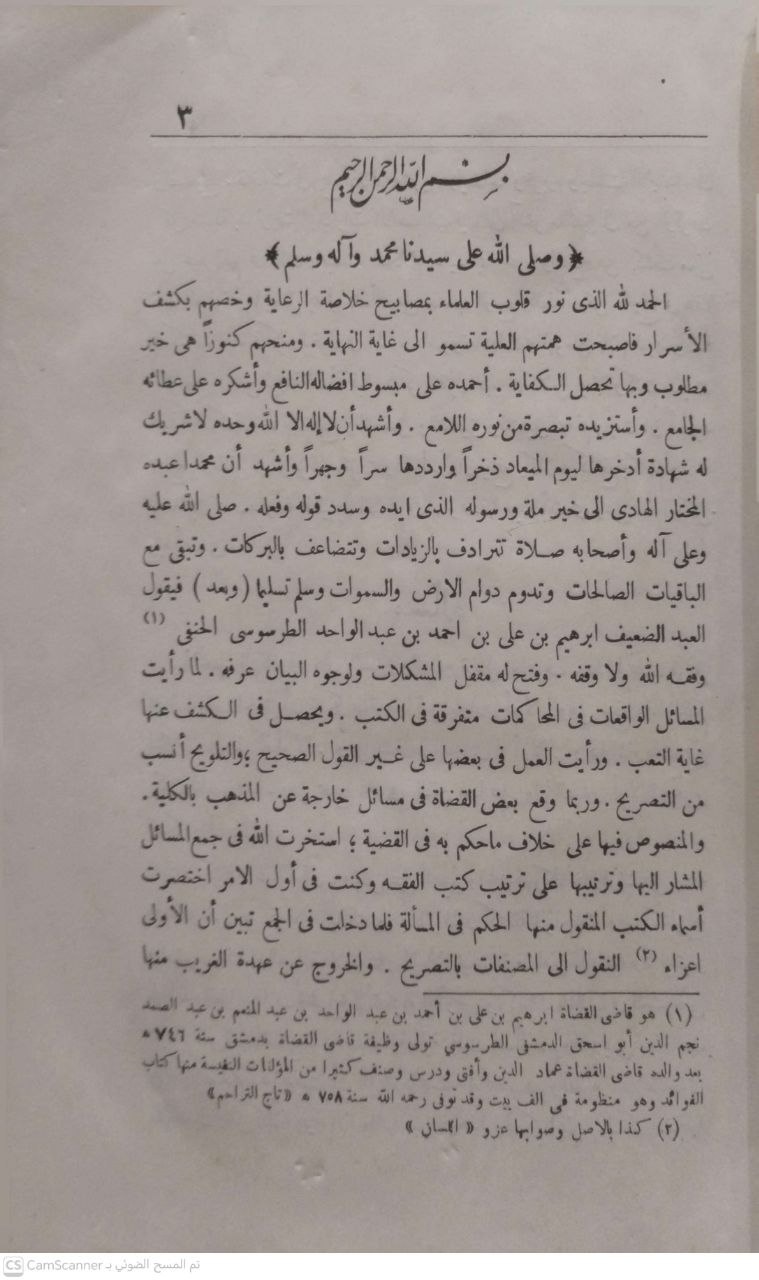 ٣
بسم الله الرحمن الرحيم
﴿ وصلى الله على سيدنا محمد وآله وسلم ﴾
الحمد لله الذى نور قلوب العلماء بمصابيح خلاصة الرعاية وخصهم بكشف
الأسرار فاصبحت همتهم العلية تسمو الى غاية النهاية . ومنحهم كنوزاً هى خير
مطلوب وبها تحصل الكفاية . أحمده على مبسوط افضاله النافع وأشكره على عطائه
الجامع . وأستزيده تبصرة من نوره اللامع . وأشهد أن لا إله الا الله وحده لا شريك
له شهادة أدخرها ليوم الميعاد ذخراً وارددها سراً وجهراً وأشهد أن محمدا عبده
المختار الهادى الى خير ملة ورسوله الذى ايده وسدد قوله وفعله . صلى الله عليه
وعلى آله وأصحابه صلاة تترادف بالزيادات وتتضاعف بالبركات . وتبقى مع
الباقيات الصالحات وتدوم دوام الارض والسموات وسلم تسليما ( وبعد ) فيقول
العبد الضعيف ابرهيم بن على بن احمد بن عبد الواحد الطرسوسى الحنفى (١)
وفقه الله ولا وقفه . وفتح له مقفل المشكلات ولوجوه البيان عرفه . لما رأيت
المسائل الواقعات فى المحاكمات متفرقة فى الكتب . ويحصل فى الكشف عنها
غاية التعب . ورأيت العمل فى بعضها على غير القول الصحيح ؛ والتلويح أنسب
من التصريح . وربما وقع بعض القضاة فى مسائل خارجة عن المذهب بالكلية .
والمنصوص فيها على خلاف ماحكم به فى القضية ؛ استخرت الله فى جمع المسائل
المشار اليها وترتيبها على ترتيب كتب الفقه وكنت فى أول الامر اختصرت
أسماء الكتب المنقول منها الحكم فى المسألة فلما دخلت فى الجمع تبين أن الأولى
اعزاء (٢) النقول الى المصنفات بالتصريح . والخروج عن عهدة الغريب منها
(١) هو قاضى القضاة ابرهيم بن على بن أحمد بن عبد الواحد بن عبد المنعم بن عبد الصمد
نجم الدين أبو اسحق الدمشقى الطرسوسي تولى وظيفة قاضى القضاة بدمشق سنة ٧٤٦ ه
بعد والده قاضى القضاة عماد الدين وأفتى ودرس وصنف كثيرا من المؤلفات النفيسة منها كتاب
الفوائد وهو منظومة فى الف بيت وقد توفى رحمه الله سنة ٧٥٨ ه « تاج التراجم »
(٢) كذا بالاصل وصوابها عزو « اللسان »
CS CamScanner تم المسح الضوئي بـ